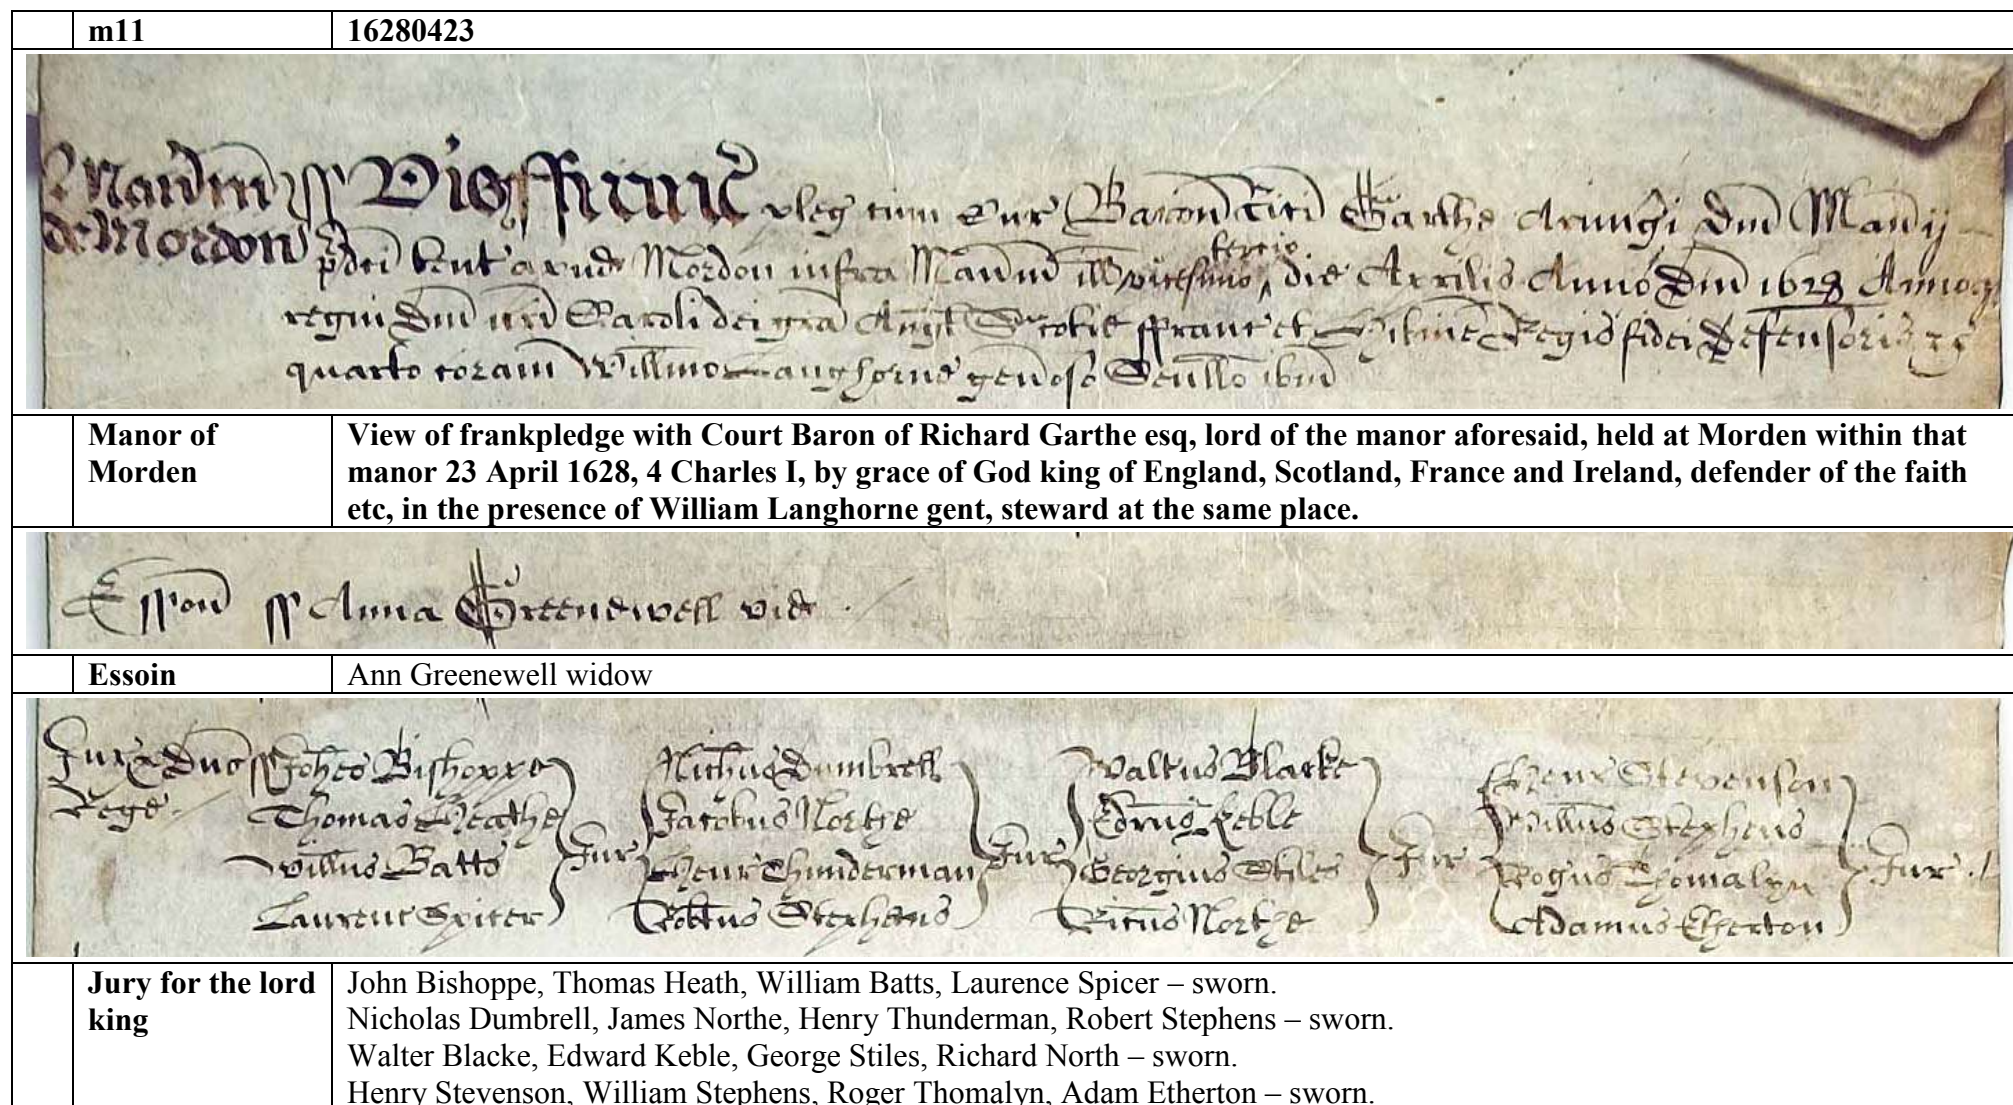 m11 16280423
Manɪ̄m ss Vis ffranc pleg cum Cur Baron Rici Garthe Armigi Dm̄ Man̄ij
de Mordon p̄dci tent apud Mordon infra Man̄m ill vicesimo tercio die Aprilis Anno Dm̄ 1628 Annoq
regni Dm̄ nr̄i Caroli dei gr̄a Angl Scotie ffranc et Hib̄nie Regis fidei Defensoris &c
quarto coram Willmo Langhorne gen̄oso Sen̄llo ib̄m
Manor of Morden
View of frankpledge with Court Baron of Richard Garthe esq, lord of the manor aforesaid, held at Morden within that
manor 23 April 1628, 4 Charles I, by grace of God king of England, Scotland, France and Ireland, defender of the faith
etc, in the presence of William Langhorne gent, steward at the same place.
Esson ss Anna Greenewell vid
Essoin Ann Greenewell widow
Jur p Dno ss Johes Bishoppe Nichus Dumbrell Waltus Blacke Henr Stevenson
Rege Thomas Heathe Jacobus Northe Edrus Keble Willus Stephens
Willus Batts Jur Henr Thunderman Jur Georgius Stiles Jur Rogus Thomalyn Jur
Laurenc Spicer Robtus Stephens Ricus Northe Adamus Etherton
Jury for the lord king
John Bishoppe, Thomas Heath, William Batts, Laurence Spicer – sworn.
Nicholas Dumbrell, James Northe, Henry Thunderman, Robert Stephens – sworn.
Walter Blacke, Edward Keble, George Stiles, Richard North – sworn.
Henry Stevenson, William Stephens, Roger Thomalyn, Adam Etherton – sworn.